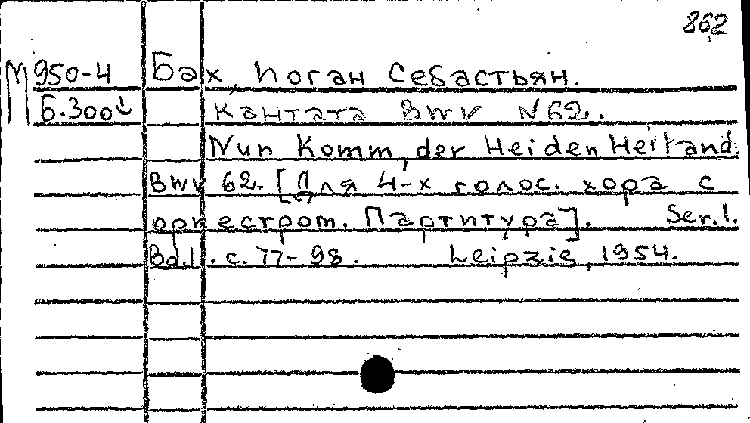 862
М 950-4 Бах, Йоган Себастьян.
Б.300 Кантата BWV N62.
Nun Komm, der Heiden Heiland.
BWV 62. [Для 4-х голос. хора с
оркестром. Партитура]. Ser.1.
Bd.1. с. 77-98. Leipzig, 1954.